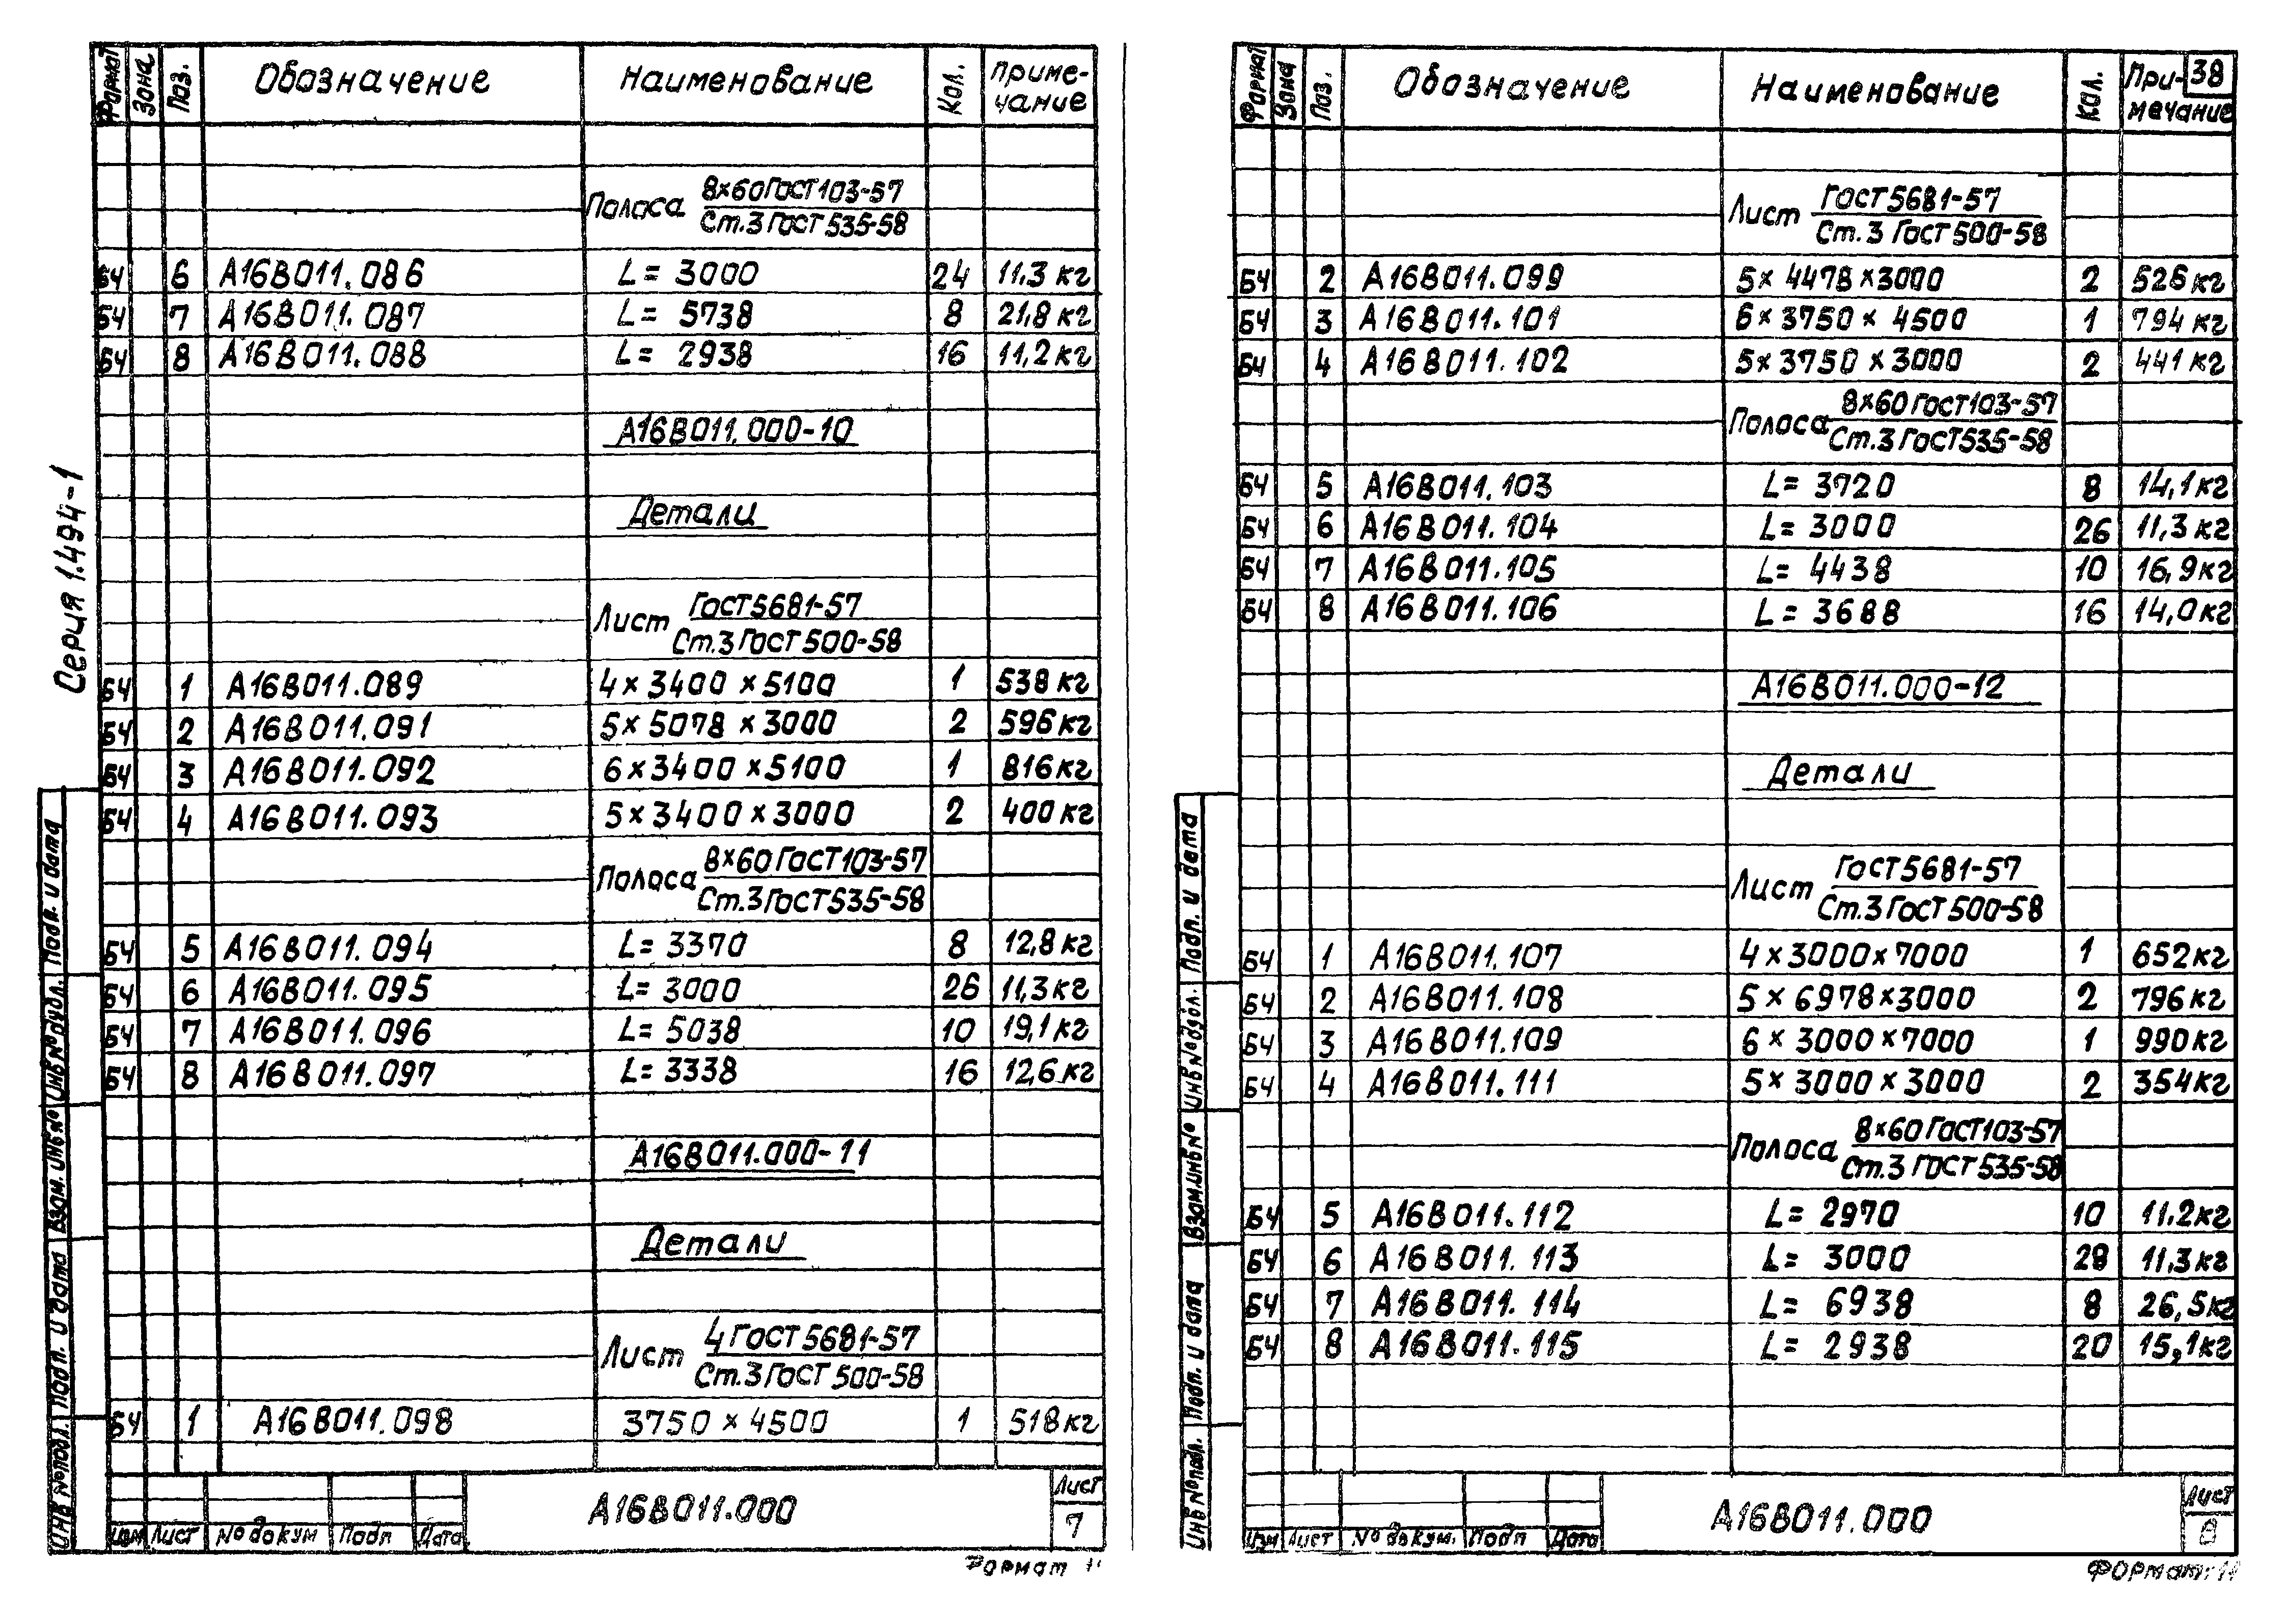 Серия 1.494-1
Формат Зона Поз. Обозначение Наименование Кол. Приме-
чание
Полоса 8×60 ГОСТ 103-57
Ст.3 ГОСТ 535-58
БЧ 6 А16В011.086 L= 3000 24 11,3 кг
БЧ 7 А16В011.087 L= 5738 8 21,8 кг
БЧ 8 А16В011.088 L= 2938 16 11,2 кг
А16В011.000-10
Детали
Лист ГОСТ 5681-57
Ст.3 ГОСТ 500-58
БЧ 1 А16В011.089 4×3400×5100 1 538 кг
БЧ 2 А16В011.091 5×5078×3000 2 596 кг
БЧ 3 А16В011.092 6×3400×5100 1 816 кг
БЧ 4 А16В011.093 5×3400×3000 2 400 кг
Полоса 8×60 ГОСТ 103-57
Ст.3 ГОСТ 535-58
БЧ 5 А16В011.094 L= 3370 8 12,8 кг
БЧ 6 А16В011.095 L= 3000 26 11,3 кг
БЧ 7 А16В011.096 L= 5038 10 19,1 кг
БЧ 8 А16В011.097 L= 3338 16 12,6 кг
А16В011.000-11
Детали
Лист 4 ГОСТ 5681-57
Ст.3 ГОСТ 500-58
БЧ 1 А16В011.098 3750×4500 1 518 кг
Инв № подл. Подп. и дата Взам. инв № Инв № дубл. Подп. и дата
Изм Лист № докум Подп Дата
А16В011.000
Лист
7
Формат 11
38
Формат Зона Поз. Обозначение Наименование Кол. При-
мечание
Лист ГОСТ 5681-57
Ст.3 ГОСТ 500-58
БЧ 2 А16В011.099 5×4478×3000 2 526 кг
БЧ 3 А16В011.101 6×3750×4500 1 794 кг
БЧ 4 А16В011.102 5×3750×3000 2 441 кг
Полоса 8×60 ГОСТ 103-57
Ст.3 ГОСТ 535-58
БЧ 5 А16В011.103 L= 3720 8 14,1 кг
БЧ 6 А16В011.104 L= 3000 26 11,3 кг
БЧ 7 А16В011.105 L= 4438 10 16,9 кг
БЧ 8 А16В011.106 L= 3688 16 14,0 кг
А16В011.000-12
Детали
Лист ГОСТ 5681-57
Ст.3 ГОСТ 500-58
БЧ 1 А16В011.107 4×3000×7000 1 652 кг
БЧ 2 А16В011.108 5×6978×3000 2 796 кг
БЧ 3 А16В011.109 6×3000×7000 1 990 кг
БЧ 4 А16В011.111 5×3000×3000 2 354 кг
Полоса 8×60 ГОСТ 103-57
Ст.3 ГОСТ 535-58
БЧ 5 А16В011.112 L= 2970 10 11.2 кг
БЧ 6 А16В011.113 L= 3000 28 11,3 кг
БЧ 7 А16В011.114 L= 6938 8 26,5 кг
БЧ 8 А16В011.115 L= 2938 20 15,1 кг
Инв № подл. Подп. и дата Взам. инв № Инв № дубл. Подп. и дата
Изм Лист № докум. Подп Дата
А16В011.000
Лист
8
Формат 11